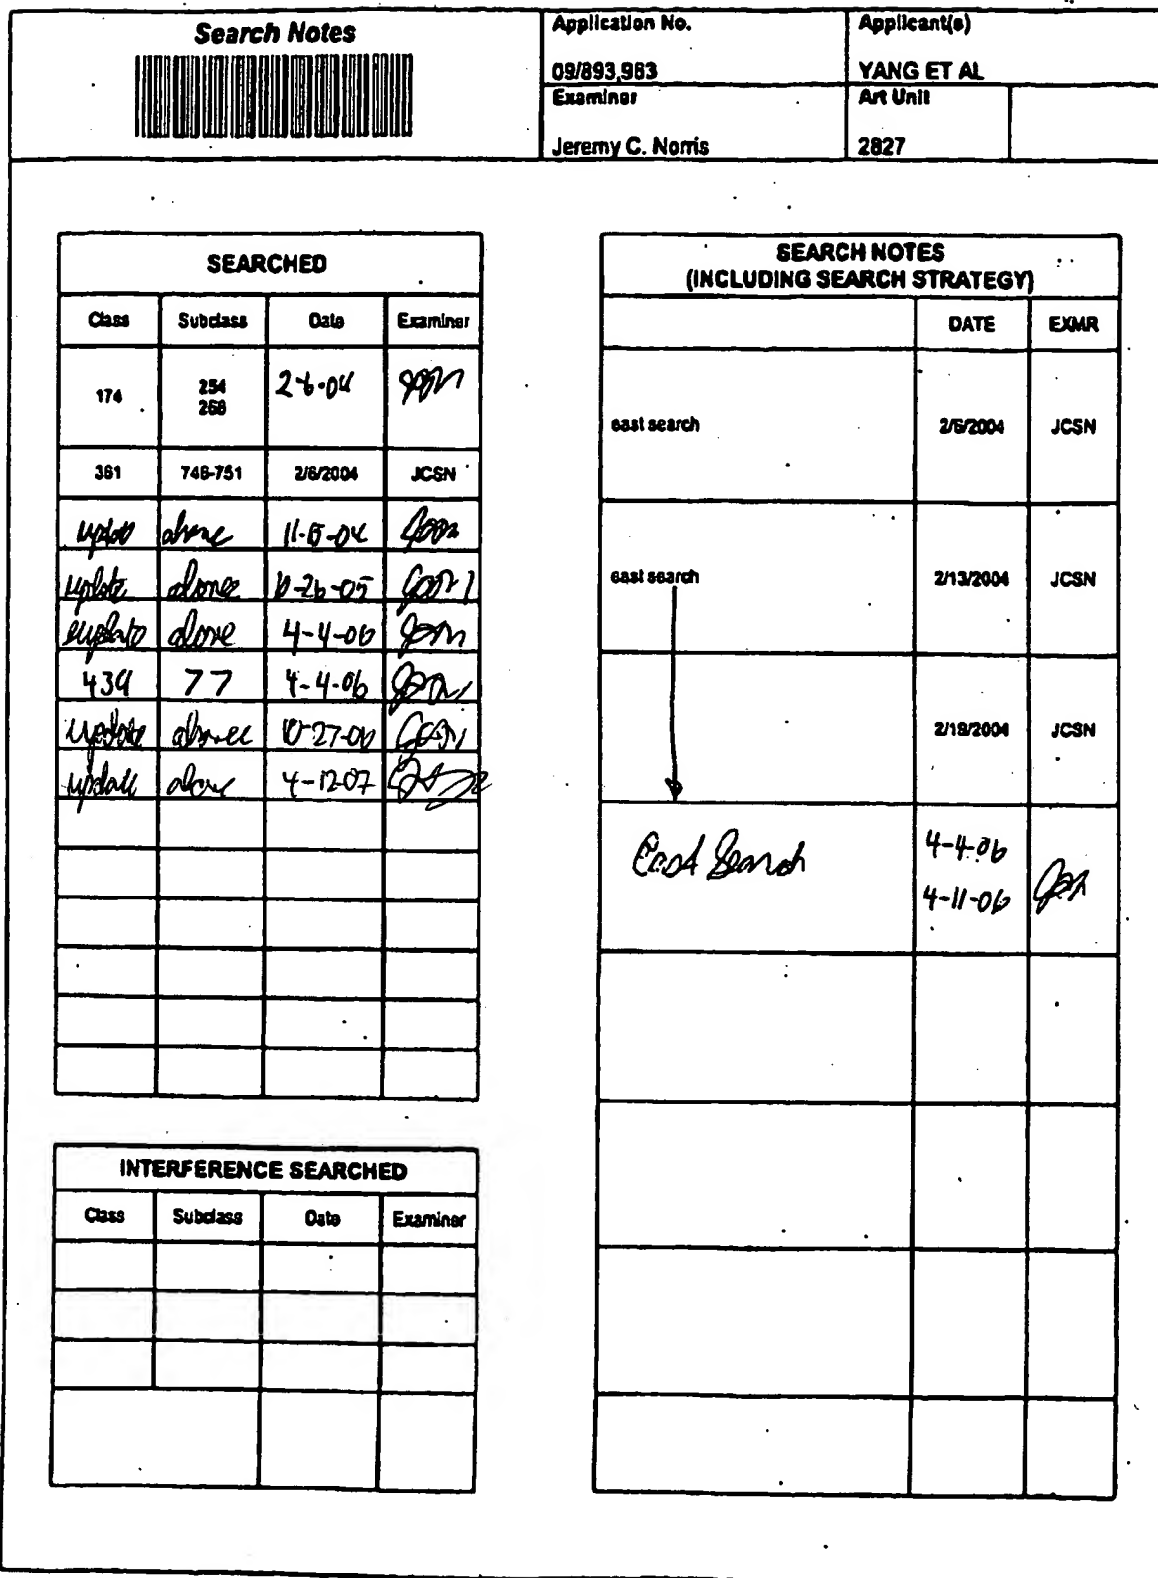 Search Notes
Application No.
09/893,983
Applicant(s)
YANG ET AL
Examiner
Jeremy C. Norris
Art Unit
2827
SEARCHED
Class Subclass Date Examiner
174 254 268 2-6-04
361 746-751 2/6/2004 JCSN
update above 11-15-04
update above 10-26-05
update above 4-4-06
439 77 4-4-06
update above 10-27-06
update above 4-12-07
INTERFERENCE SEARCHED
Class Subclass Date Examiner
SEARCH NOTES
(INCLUDING SEARCH STRATEGY)
DATE EXMR
east search 2/6/2004 JCSN
east search 2/13/2004 JCSN
2/19/2004 JCSN
East Search 4-4-06
4-11-06